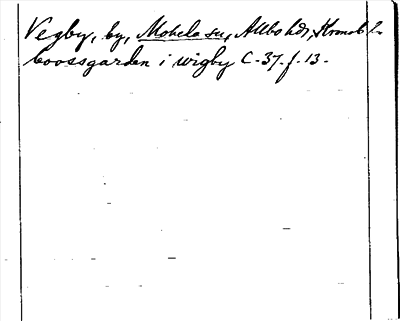 Vegby, by, Moheda sn, Allbo hd, Kronob l.
boossgarden i wigby C. 37. f. 13.